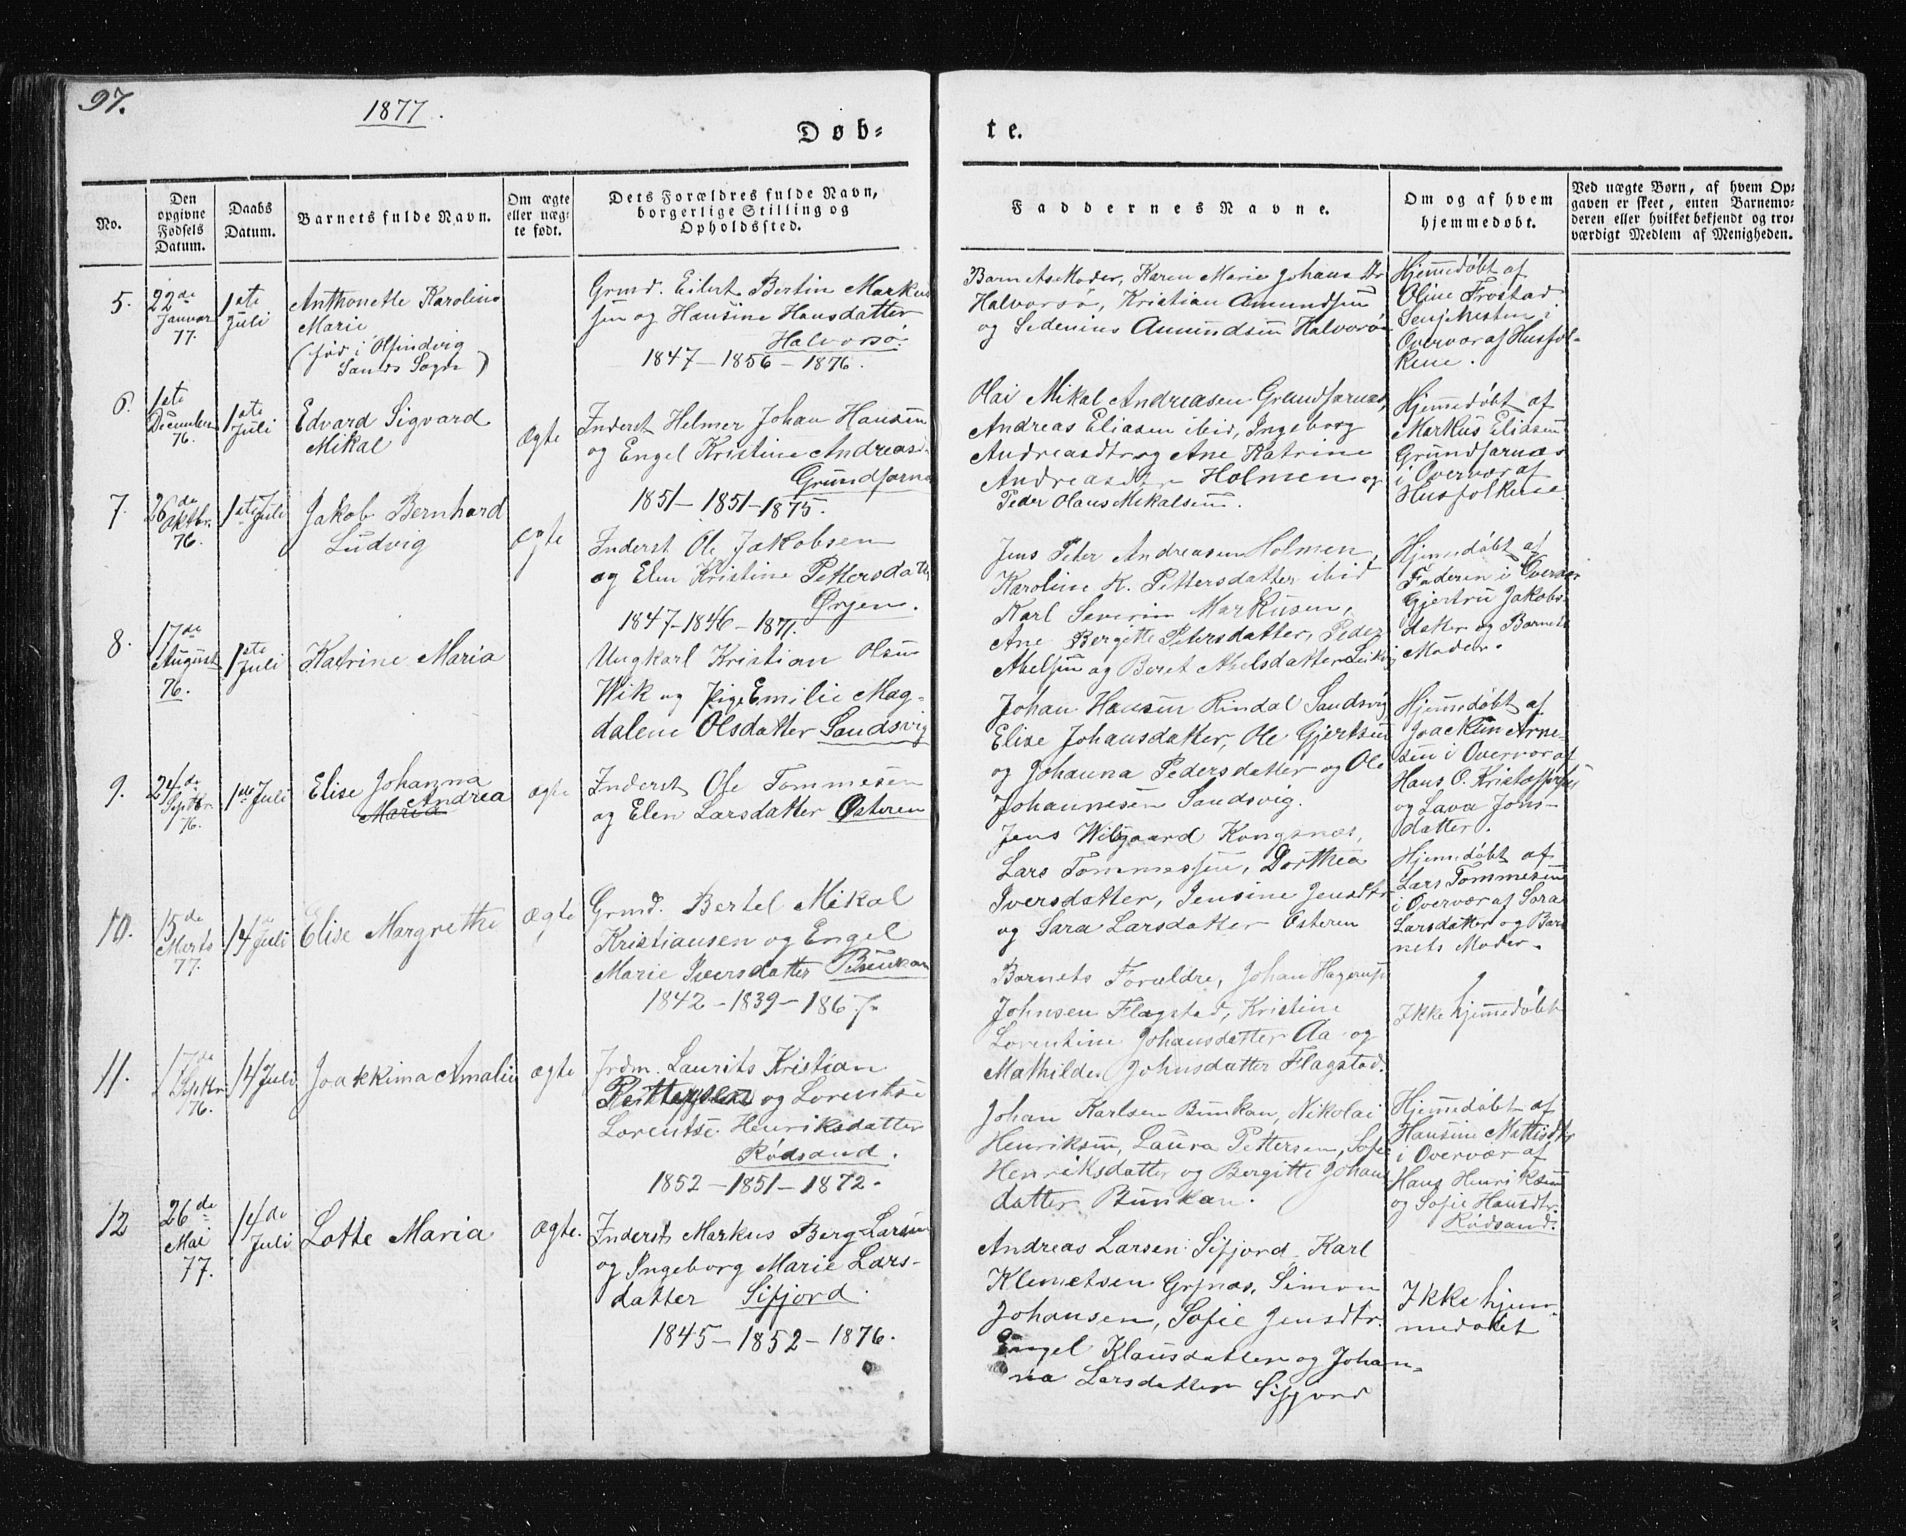 97.
1877.
Døb-
te.
No.
Den opgivne Fødsels Datum.
Daabs Datum.
Barnets fulde Navn.
Om ægte eller uægte født.
Dets Forældres fulde Navn, borgerlige Stilling og Opholdssted.
Faddernes Navne.
Om og af hvem hjemmedøbt.
Ved uægte Børn, af hvem Op-
gaven er skeet, enten Barnemo-
deren eller hvilket bekjendt og tro-
værdigt Medlem af Menigheden.
5.
22de
Januar
77.
1ste
Juli
Anthonette Karoline
Marie
(født i
Sands Sogn)
Grmd. Eilert Bertin Markus
sen og Hansine Hansdatter
Halvorsø.
1847 - 1856 - 1876.
Barnets Moder, Karen Marie Johansdtr
Halvorsø, Kristian Amundsen
og Sedenius Amundsen Halvorsø
Hjemmedøbt af
Oline Frostad
Senjehesten i
Overvær af Husfol-
kene.
6.
1ste
December
76.
1ste
Juli
Edvard Sigvard
Mikal
Ægte
Inderst Helmer Johan Hansen
og Engel Kristine Andreasd.
Grundfarnæs
1851 - 1851 - 1875.
Olai Mikal Andreasen Grundfarnæs,
Andreas Eliasen ibid, Ingeborg
Andreasdtr og Ane Katrine
Andreasdtr Holmen og
Peder Olaus Mikalsen.
Hjemmedøbt af
Markus Eliasen
Grundfarnæs
i Overvær af
Husfolkene
7.
26de
Oktbr.
76.
1ste Juli
Jakob Bernhard
Ludvig
Ægte
Inderst Ole Jakobsen
og Elen Kristine Pettersdatter
Ørjen.
1847-1846-1871.
Jens Peter Andreasen Holmen,
Karoline K. Pettersdatter ibid
Karl Severin Markusen,
Ane Bergitte Petersdatter, Peder
Abelsen og Beret Abelsdatter Leikvig
Hjemmedøbt af
Faderen i Overvær
Gjertru Jakobs-
datter og Barnets
Moder.
8.
17de
August
76.
1ste
Juli
Katrine Maria
Ungkarl Kristian Olsen
Wik og Pige Emilie Mag-
dalene Olsdatter Sandsvig
Johan Hansen Rindal Sandsvig
Elise Johansdatter, Ole Gjertsen
og Johanna Pedersdatter og Ole
Johannesen Sandsvig.
Hjemmedøbt af
Joackim Arne-
sen i Overvær af
Hans O. Kristoffersen
og Lava Jons-
datter.
9.
24de
Septbr.
76.
1ste Juli
Elise Johanna
Andrea
Maria
Ægte
Inderst Ole Tommesen
og Elen Larsdatter Østeren
Jens Wilgaard Kongsnæs,
Lars Tommessen, Dorthea
Iversdatter, Jensine Jensdtr
og Sara Larsdatter Østeren
Hjemmedøbt af
Lars Tommesen
i Overvær af Sara
Larsdatter og Bar
nets Moder.
10.
15de
Marts
77.
14de
Juli
Elise Margrethe
Ægte
Grmd. Bertel Mikal
Kristiansen og Engel
Marie Iversdatter Bunkan
1842 - 1839 - 1867.
Barnets Forældre, Johan Hagerup
Johnsen Flagstad, Kristine
Lorentine Johansdatter Aa og
Mathilde Johnsdatter Flagstad.
Ikke hjemmedøbt
11.
17de
Septbr
76.
14 Juli
Joakkima Amalie
Ægte
Jrdm. Laurits Kristian
Pettersen og Lorentse
Lorentse Henriksdatter
Rødsand.
1852 - 1851 - 1872.
Johan Karlsen Bunkan, Nikolai
Henriksen, Laura Pettersen, Sofie
Henriksdatter og Bergitte Johans
datter Bunkan.
Hjemmedøbt af
Hansine Mattisdtr
i Overvær af
Hans Henriksen
og Sofie Hansdtr.
Rødsand.
12
26de
Mai
77.
14de
Juli
Lotte Maria
Ægte.
Inderst Markus Berg Larsen
og Ingeborg Marie Lars-
datter Sifjord.
1845 - 1852 - 1876.
Andreas Larsen Sifjord, Karl
Klemetsen Grfnæs, Simon
Johansen, Sofie Jensdtr.
Engel Klausdatter og Johan-
na Larsdatter Sifjord
Ikke hjem-
medøbt